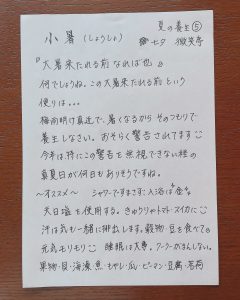 夏の養生⑤
小暑(しょうしょ) 七夕 微笑亭
『大暑来たれる前なれば也』
何でしょうね。この大暑来たれる前という
使りは・・・
梅雨明け真近で、暑くなるからそのつもりで
養生しなさい。おそらく警告されてます
今年は特にこの警告を無視できない程の
真夏日が何日もありそうですね。
〜オススメ〜 シャワーですまさず、入浴は
天日塩を使用する。きゅうりやトマト・スイカに
汗は気も一緒に排出します。穀物・豆を食べて
元気モリモリ 睡眠は大事。クーラーがまんしない。
果物・貝・海藻・魚・もやし・瓜・ピーマン・豆腐・茗荷